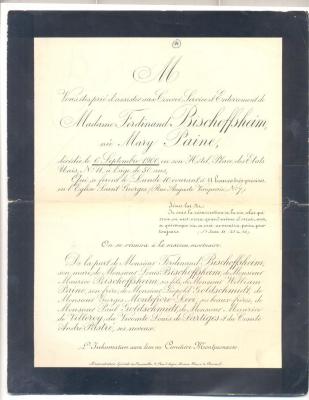 M
Vous êtes prié d'assister aux Convoi, Service et Enterrement de
Madame Ferdinand Bischoffsheim,
née Mary Paine,
décédée le 6 Septembre 1900, en son Hôtel, Place des États
Unis, Nº 11, à l'âge de 50 ans,
Qui se feront le Lundi 10 courant, à 11 heures très précises,
en l'Église Saint Georges, (Rue Auguste Vacquerie, Nº 7.)
On se réunira à la maison mortuaire.
De la part de Monsieur Ferdinand Bischoffsheim,
son mari, de Monsieur Louis Bischoffsheim, de Monsieur
Maurice Bischoffsheim, ses fils, de Monsieur William
Paine, son frère, de Monsieur Léopold Goldschmidt, de
Monsieur Georges Montefiore Levi, ses beaux-frères, de
Monsieur Paul Goldschmidt, de Monsieur Maurice
de Villeroy, du Vicomte Louis de Sartiges et du Comte
André Pastré, ses neveux.
L'Inhumation aura lieu au Cimetière Montparnasse.